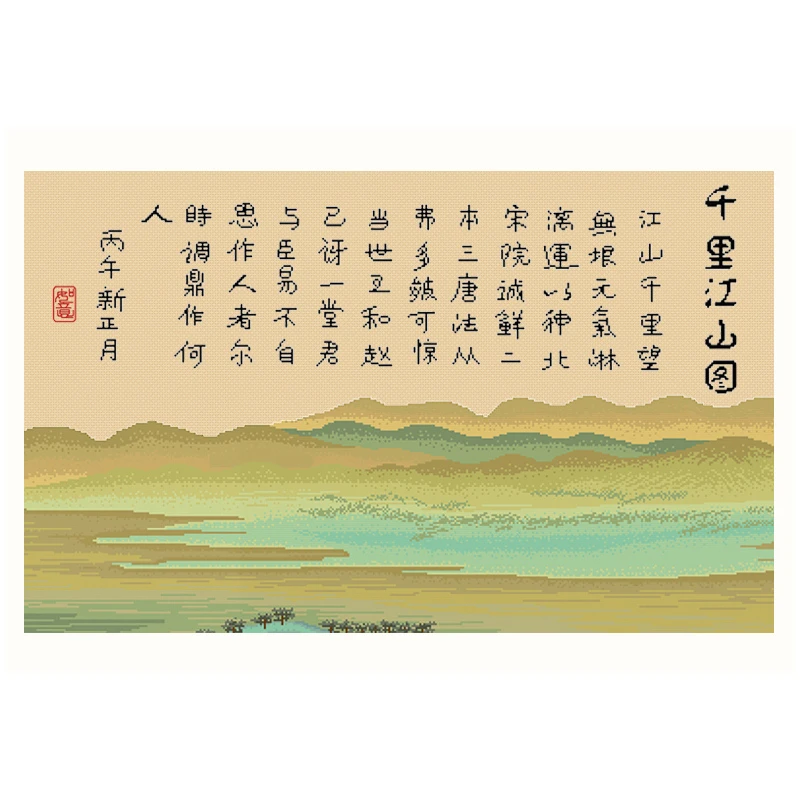 千里江山图
江山千里望
無垠元氣淋
漓運以神北
宋院誠鮮二
本三唐法从
弗多皴可惊
当世王和赵
已讶一堂君
与臣易不自
思作人者尔
時调鼎作何
人
丙午新正月
如意